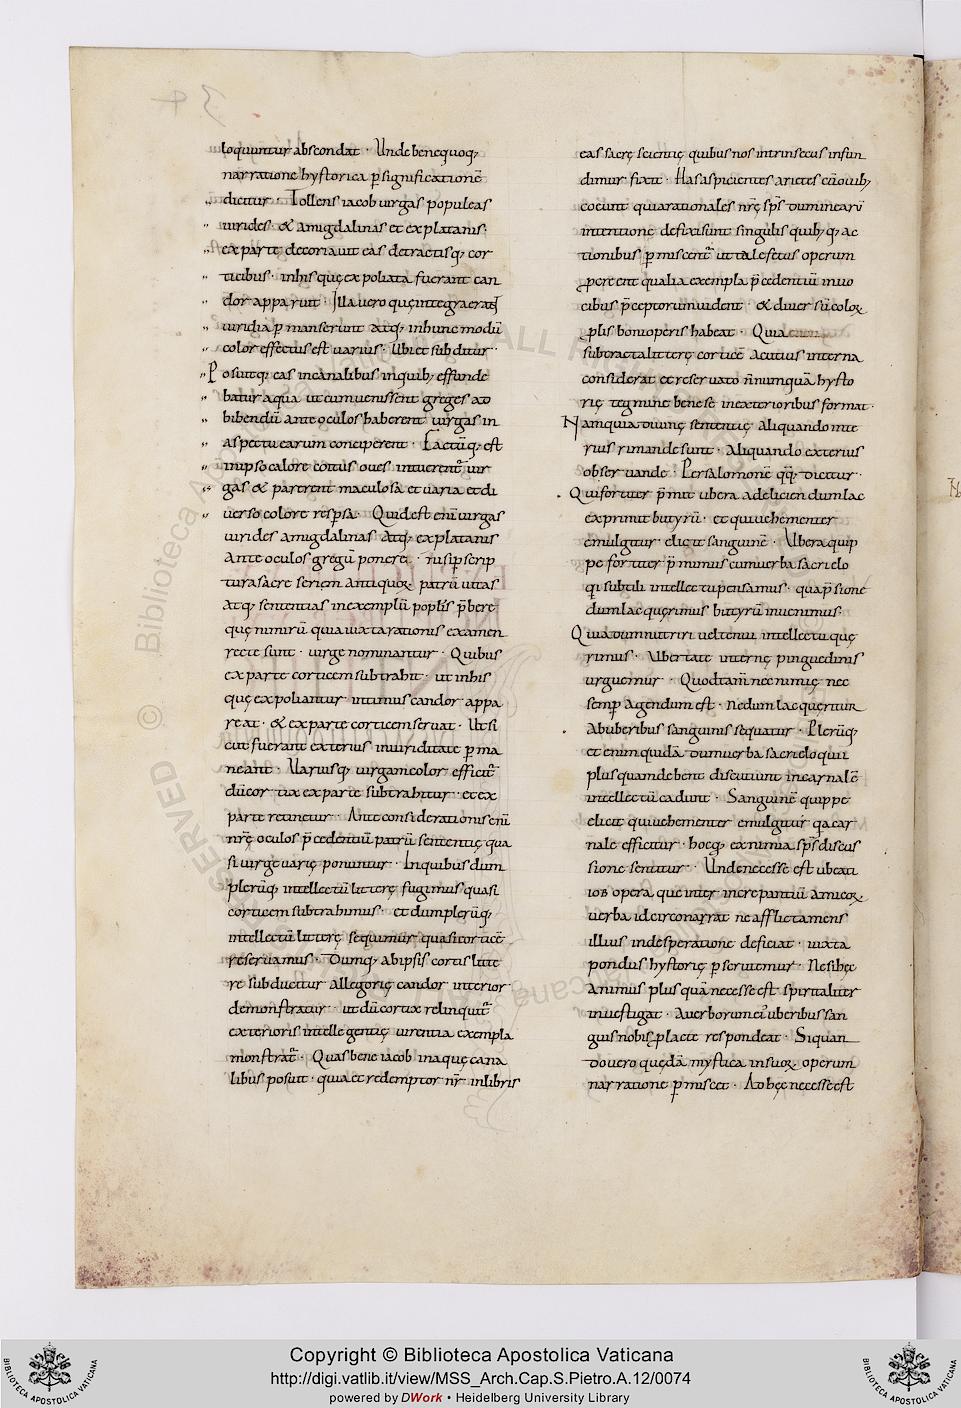 loquuntur abscondat · Unde bene quoq;
narratione hystorica p̱ significationē
dicitur · Tollens iacob uirgas populeas
uirides · & amigdalinas et ex platanis·
ex parte decorauit eas detractisq; cor
ticibus · inhis quę expoliata fuerant can
dor apparuit · Illa uero quę integra erant
uiridia p̱manserunt atq; in hunc modū
color effectus est uarius · Ubi et subditur·
Posuitq; eas in canalibus in quib; effunde
batur aqua ut cum uenissent greges ad
bibendū ante oculos haberent uirgas in
aspectu earum conciperent · Factūq; est
in ipso calore coitus oues intuerent̃ uir
gas & parerent maculosa et uaria et di
uerso colore resp̱sa · Quid est enī uirgas
uirides amigdalinas atq; ex platanis
ante oculos gregū ponere · nisi p̱ scrip
turā sacrę seriem antiquoꝝ patrū uitas
atq; sententias in exemplū poplis p̄bere
quę nimirū quia iuxta rationis examen
recte sunt · uirgę nominantur · Quibus
ex parte corticem subtrahit · ut inhis
quę expoliantur intimus candor appa
reat · & ex parte corticem seruat · Ut si
cut fuerant exterius in uiriditate p̱ma
neant · Uariusq; uirgarum color efficit̃
dū cortex ex parte subtrahitur · et ex
parte retinetur · Ante considerationis enī
nr̄ę oculos p̄cedentiū patrū sententię qua
si uirgę uarię ponuntur · In quibus dum
plerūq; intellectū litterę fugimus quasi
corticem subtrahimus · et dum plerūq;
intellectū litterę sequimur quasi corticē
reseruamus · Dumq; ab ipsis cortis litte
rę subducitur allegorię candor interior
demonstratur · ut dū cortex relinquit̃
exterioris intellegentię uirentia exempla
monstrat̃ · Quas bene iacob in aquę cana
libus posuit · quia et redemptor nr̄ in libris
eas sacrę scientię quibus nos intrinsecus infun
dimur fixit · Has aspicientes arietes cū ouib;
coeunt quia rationales nr̄ę sp̄s dum in earū
intentione defixi sunt singulis quib;q; ac
tionibus p̱miscent̃ ut tales fetus operum
p̱ereent qualia exempla p̄cedentiū in uo
cibus p̄ceptorum uident · & diuersū coloꝝ
plis boni operis habeat · Quia
subtracta litterę corticē acutius interna
considerat et reseruato n̄numquā hysto
rię tegmine bene se in exterioribus format·
Nam quia diuinę sententię aliquando inte
rius rimandę sunt · Aliquando exterius
obseruandę · Per salomonē qq; dicitur·
Qui fortiter p̄mit ubera ad eliciendum lac
exprimit butyrū · et qui uehementer
emulgitur elicit sanguinē · Ubera quip
pe fortiter p̄mimus cum uerba sacri elo
qi subtili intellectu pensamus · qua p̄ssione
dum lac quęrimus butyrū inuenimus·
Quia dum nutriri uel tenui intellectu quę
rimus · Ubertate internę pinguedinis
urguemur · Quod tam̄ nec nimię nec
semp̱ agendum est · ne dum lac quęritur
ab uberibus sanguinis sequatur · Plerūq;
et enim quidā dum uerba sacri eloquii
plus quam debent discutiunt in carnalē
intellectū cadunt · Sanguinē quippe
elicit qui uehementer emulgitur qa car
nale efficitur · hocq; ex nimia sp̄s discus
sione sentitur · Unde necesse est ut beati
iob opera que inter increpantiū amicoꝝ
uerba idcirco narrat ne afflicta mens
illius in desperatione deficiat · iuxta
pondus hystorię p̱scrutemur · Ne si hęc
animus plus quā necesse est spiritaliter
inuestigat · A uerborum ei' uberibus san
guis nobis p̱ lacte respondeat · Si quan
do uero quędā mystica in suoꝝ operum
narratione p̱miscet · Ad hęc necesse est
Copyright © Biblioteca Apostolica Vaticana
http://digi.vatlib.it/view/MSS_Arch.Cap.S.Pietro.A.12/0074
powered by DWork • Heidelberg University Library